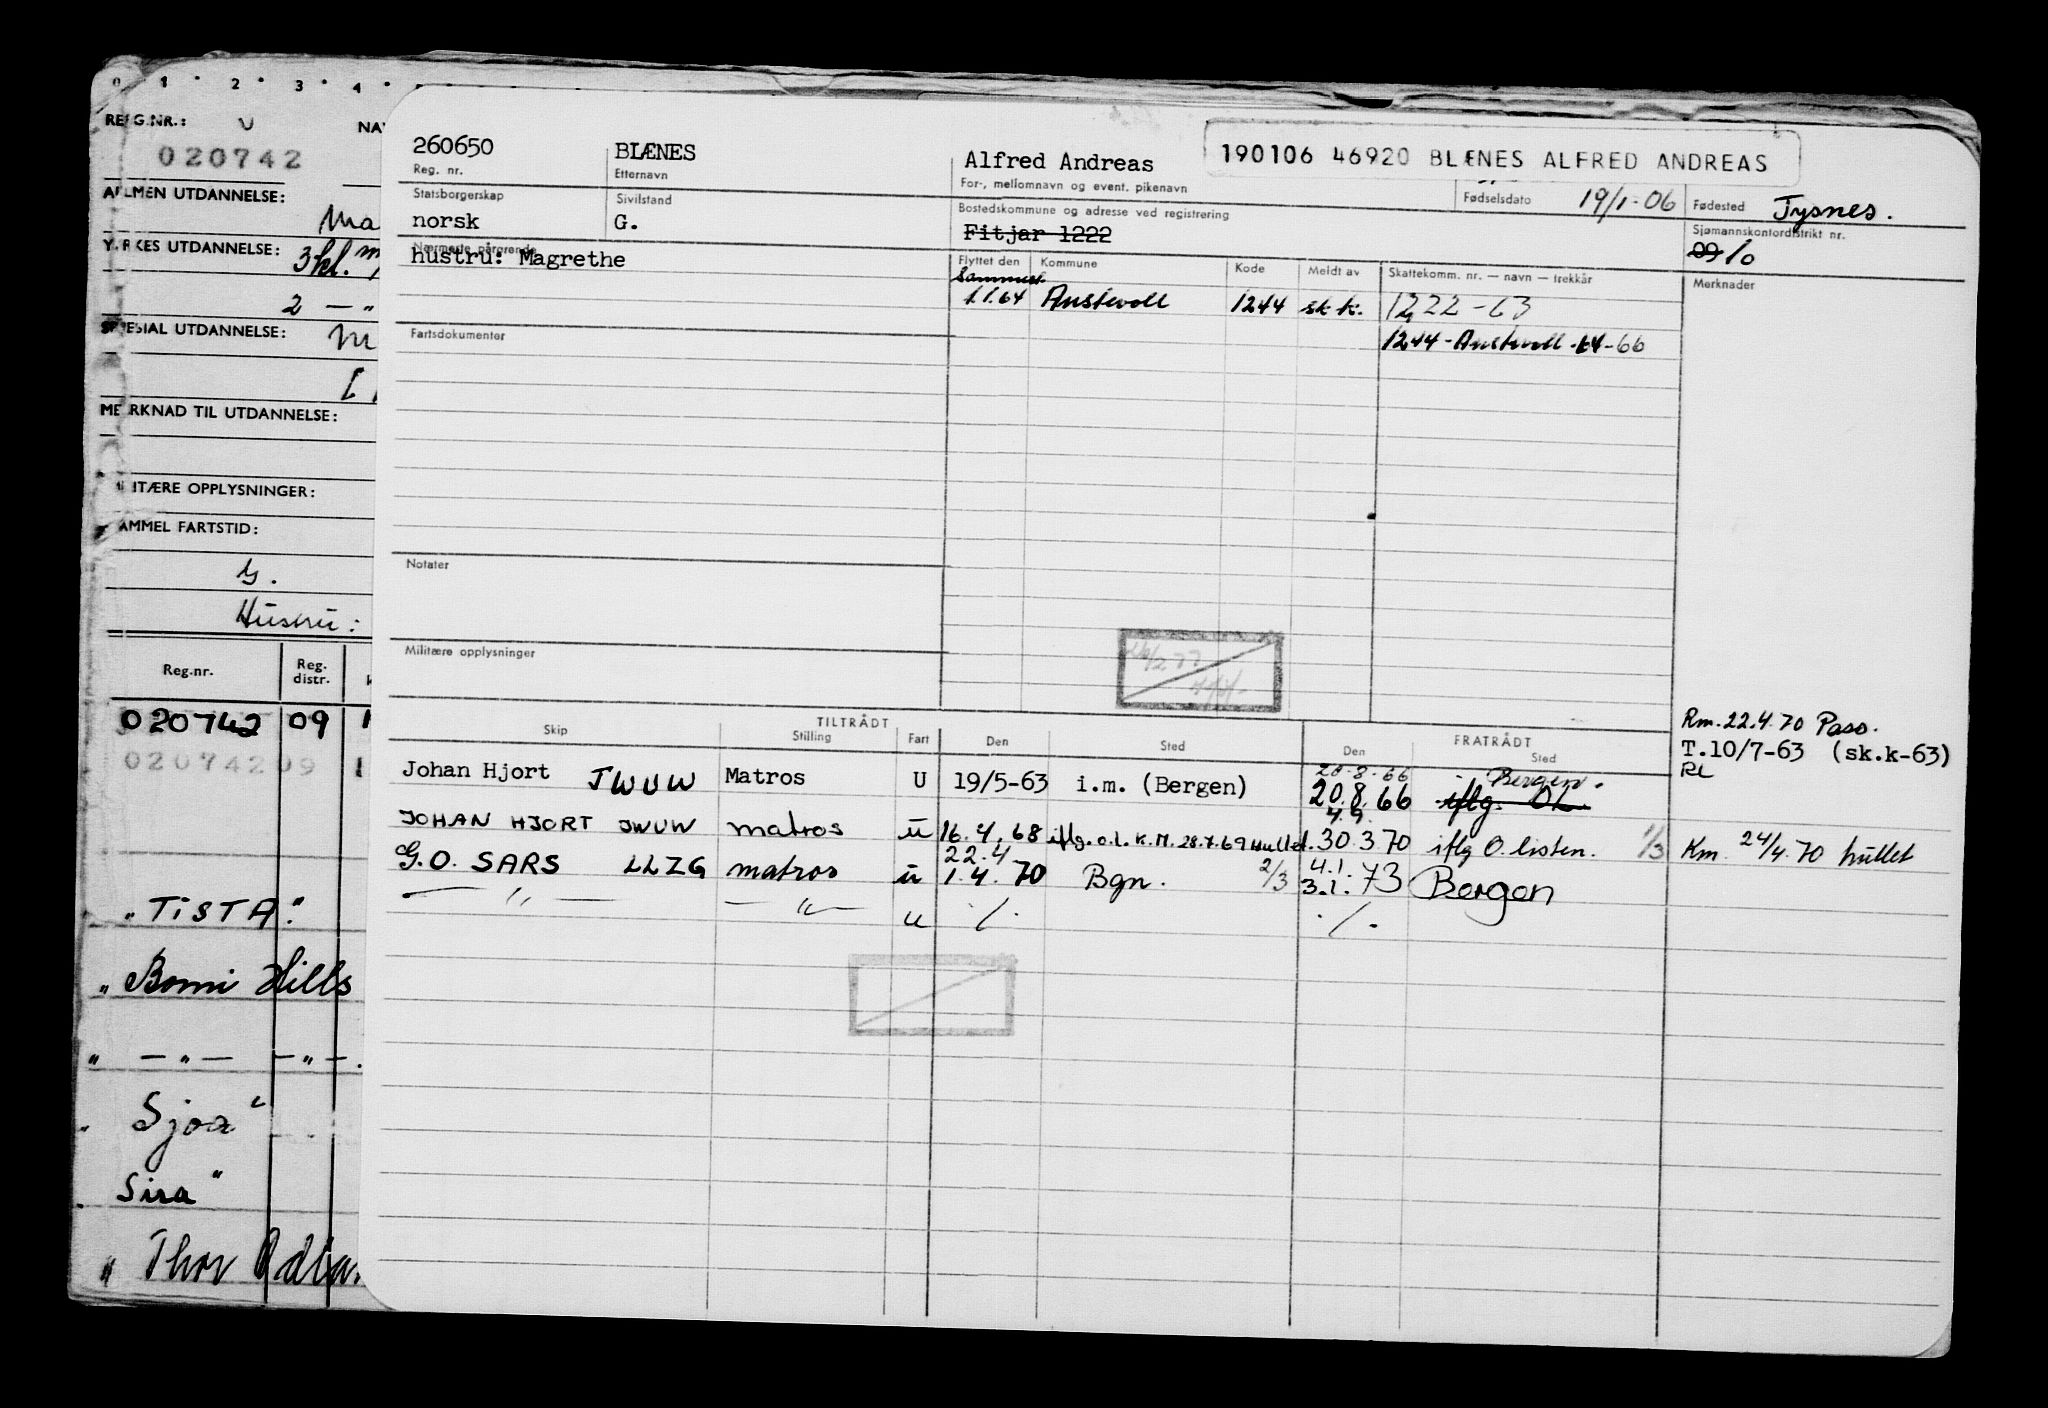 0 1 2 3 4
REG.NR.:
020742
ALMEN UTDANNELSE:
YRKES UTDANNELSE: 3 kl.
2 — "
SPESIAL UTDANNELSE:
MERKNAD TIL UTDANNELSE:
MILITÆRE OPPLYSNINGER:
GAMMEL FARTSTID:
G.
Hustru:
Reg.nr. Reg. distr.
020742 09
020742 09
"TISTA"
"Bomi Hills
" — " — — " —.
"Sjoa"
"Sira"
"Thor Odin
260650 BLÆNES Alfred Andreas 190106 46920 BLÆNES ALFRED ANDREAS
Reg. nr. Etternavn For-, mellomnavn og event. pikenavn Fødselsdato 19/1-06 Fødested Tysnes.
Statsborgerskap Sivilstand Bostedskommune og adresse ved registrering Sjømannskontordistrikt nr.
norsk G. Fitjar 1222 09 10
Nærmeste pårørende Flyttet den Kommune Kode Meldt av Skattekomm. nr. — navn — trekkår Merknader
hustru: Magrethe
1.1.64 Austevoll 1244 sk.k. 1222-63
Fartsdokumenter 1244-Austevoll-64-66
Notater
Militære opplysninger
TILTRÅDT FRATRÅDT
Skip Stilling Fart Den Sted Den Sted
Rm. 22.4.70 Pass.
T.10/7-63 (sk.k-63)
Johan Hjort JWUW Matros U 19/5-63 i.m. (Bergen) 20.8.66 20.8.66 iflg. OL Bergen.
4.9.
JOHAN HJORT JWUW matros u 16.4.68 iflg. o.l. K.M. 28.7.69 hullet. 30.3.70 iflg O.listen. 1/3 Km. 24/4.70 hullet
22.4 4.1.
G.O. SARS LLZG matros u 1.4.70 Bgn. 2/3 3.1.73 Bergen
— " — — " — u ./. ./.